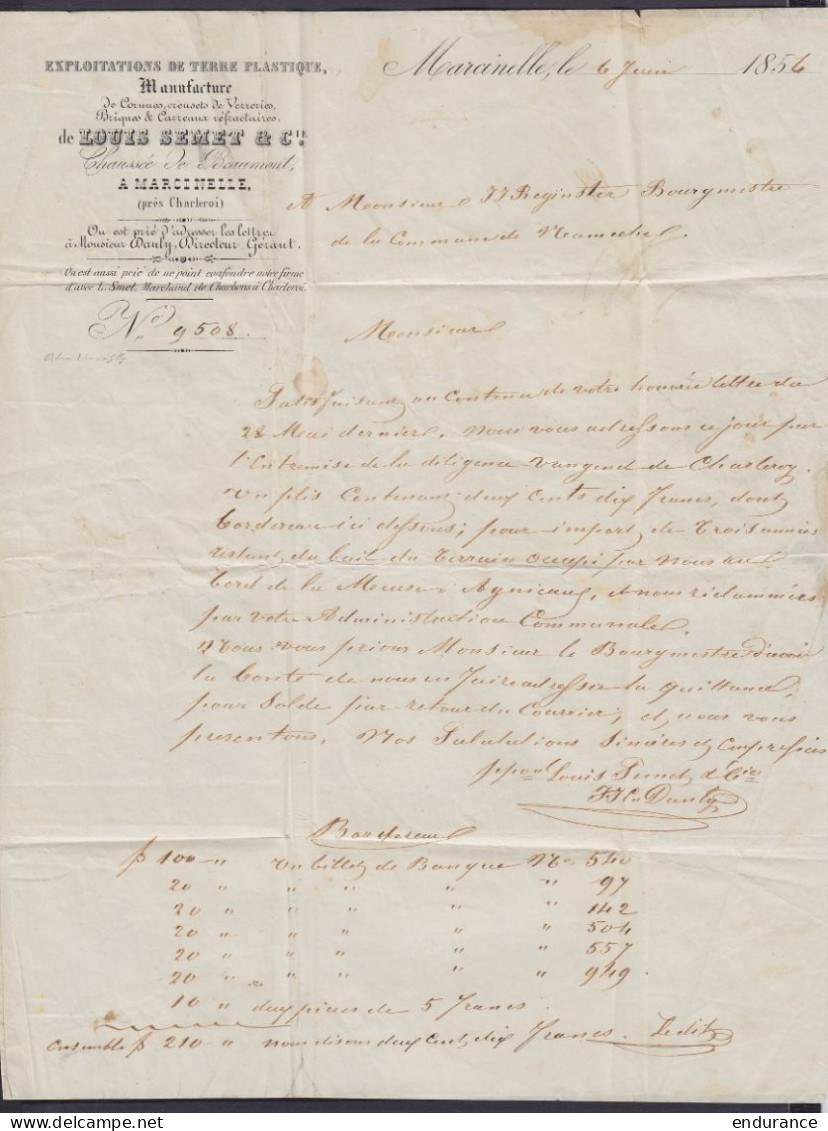 EXPLOITATIONS DE TERRE PLASTIQUE,
Manufacture
de Cornues, creusets de Verreries,
Briques & Carreaux réfractaires.
de LOUIS SEMET & Cie.
Chaussée de Beaumont,
A MARCINELLE,
(près Charleroi)
On est prié d'adresser les lettres
à Monsieur Dauly, Directeur Gérant.
On est aussi prié de ne point confondre notre firme
d'avec L. Smet, Marchand de Charbons à Charleroi.
No 9508.
Marcinelle, le 6 Juin 1856
A Monsieur Reginster Bourgmestre
de la Commune de Namêche.
Monsieur
Satisfaisant au contenu de votre honorée lettre du
28 Mai dernier. Nous vous adressons ce jour par
l'Entremise de la diligence Vangend de Charleroy
un plis Contenant deux cents dix francs, dont
bordereau ici dessous; pour import de trois années
restant du bail du terrain occupé par nous au
bord de la Meuse à, et nous réclammées
par votre Administration Communale.
Nous vous prions Monsieur le Bourgmestre d'avoir
la bonté de nous en faire adresser la quittance,
pour solde par retour du Courrier, et nous vous
presentons, Nos Salutations Sincères et Empressées
ppon Louis Semet & Cie
Dauly
Bordereau
f 100 " un billet de Banque No 540
20 " " " " " 97
20 " " " " " 142
20 " " " " " 504
20 " " " " " 557
20 " " " " " 949.
10 " deux pièces de 5 francs.
ensemble f 210 " nous disons deux cent dix francs. Ledit
endurance
delcampe.net